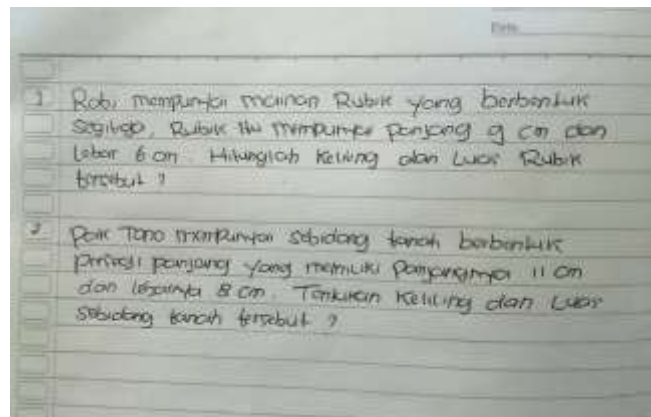 Date
1 Robi mempunyai mainan Rubik yang berbentuk
Segitiga, Rubik itu mempunyai panjang 9 cm dan
Lebar 6 cm. Hitunglah Keliling dan Luas Rubik
tersebut ?
2 Pak Tono mempunyai sebidang tanah berbentuk
persegi panjang yang memiliki panjangnya 11 cm
dan lebarnya 8 cm. Tentukan Keliling dan Luas
Sebidang tanah tersebut ?